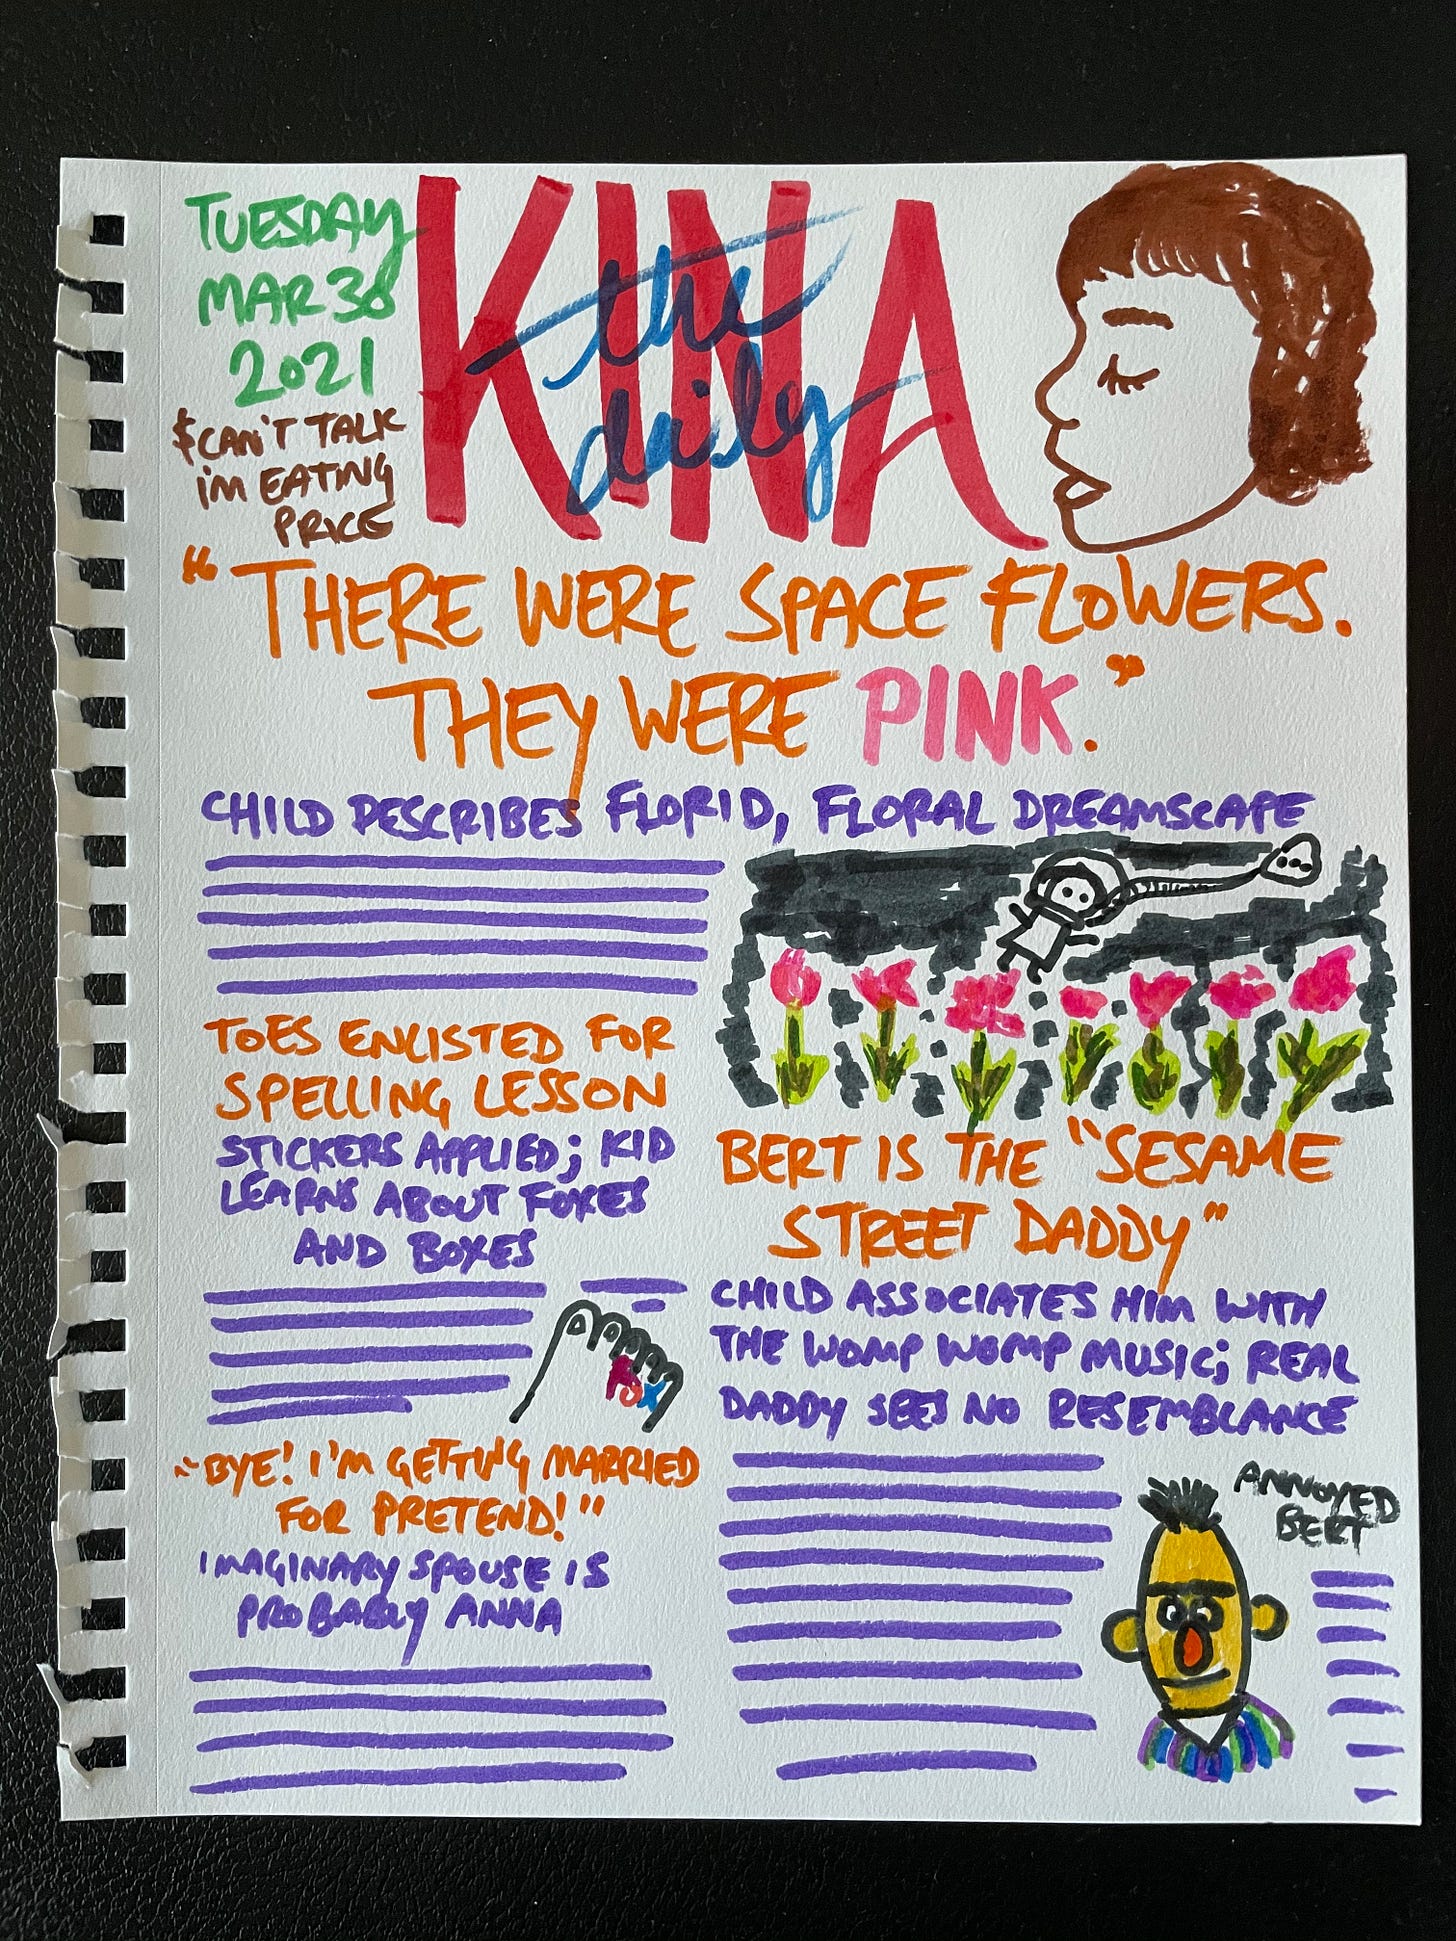 TUESDAY
MAR 30
2021
$CAN'T TALK
I'M EATING
PRICE
KINA
the
daily
"THERE WERE SPACE FLOWERS.
THEY WERE PINK."
CHILD DESCRIBES FLORID, FLORAL DREAMSCAPE
TOES ENLISTED FOR
SPELLING LESSON
STICKERS APPLIED; KID
LEARNS ABOUT FOXES
AND BOXES
FOX
"BYE! I'M GETTING MARRIED
FOR PRETEND!"
IMAGINARY SPOUSE IS
PROBABLY ANNA
BERT IS THE "SESAME
STREET DADDY"
CHILD ASSOCIATES HIM WITH
THE WOMP WOMP MUSIC; REAL
DADDY SEES NO RESEMBLANCE
ANNOYED
BERT